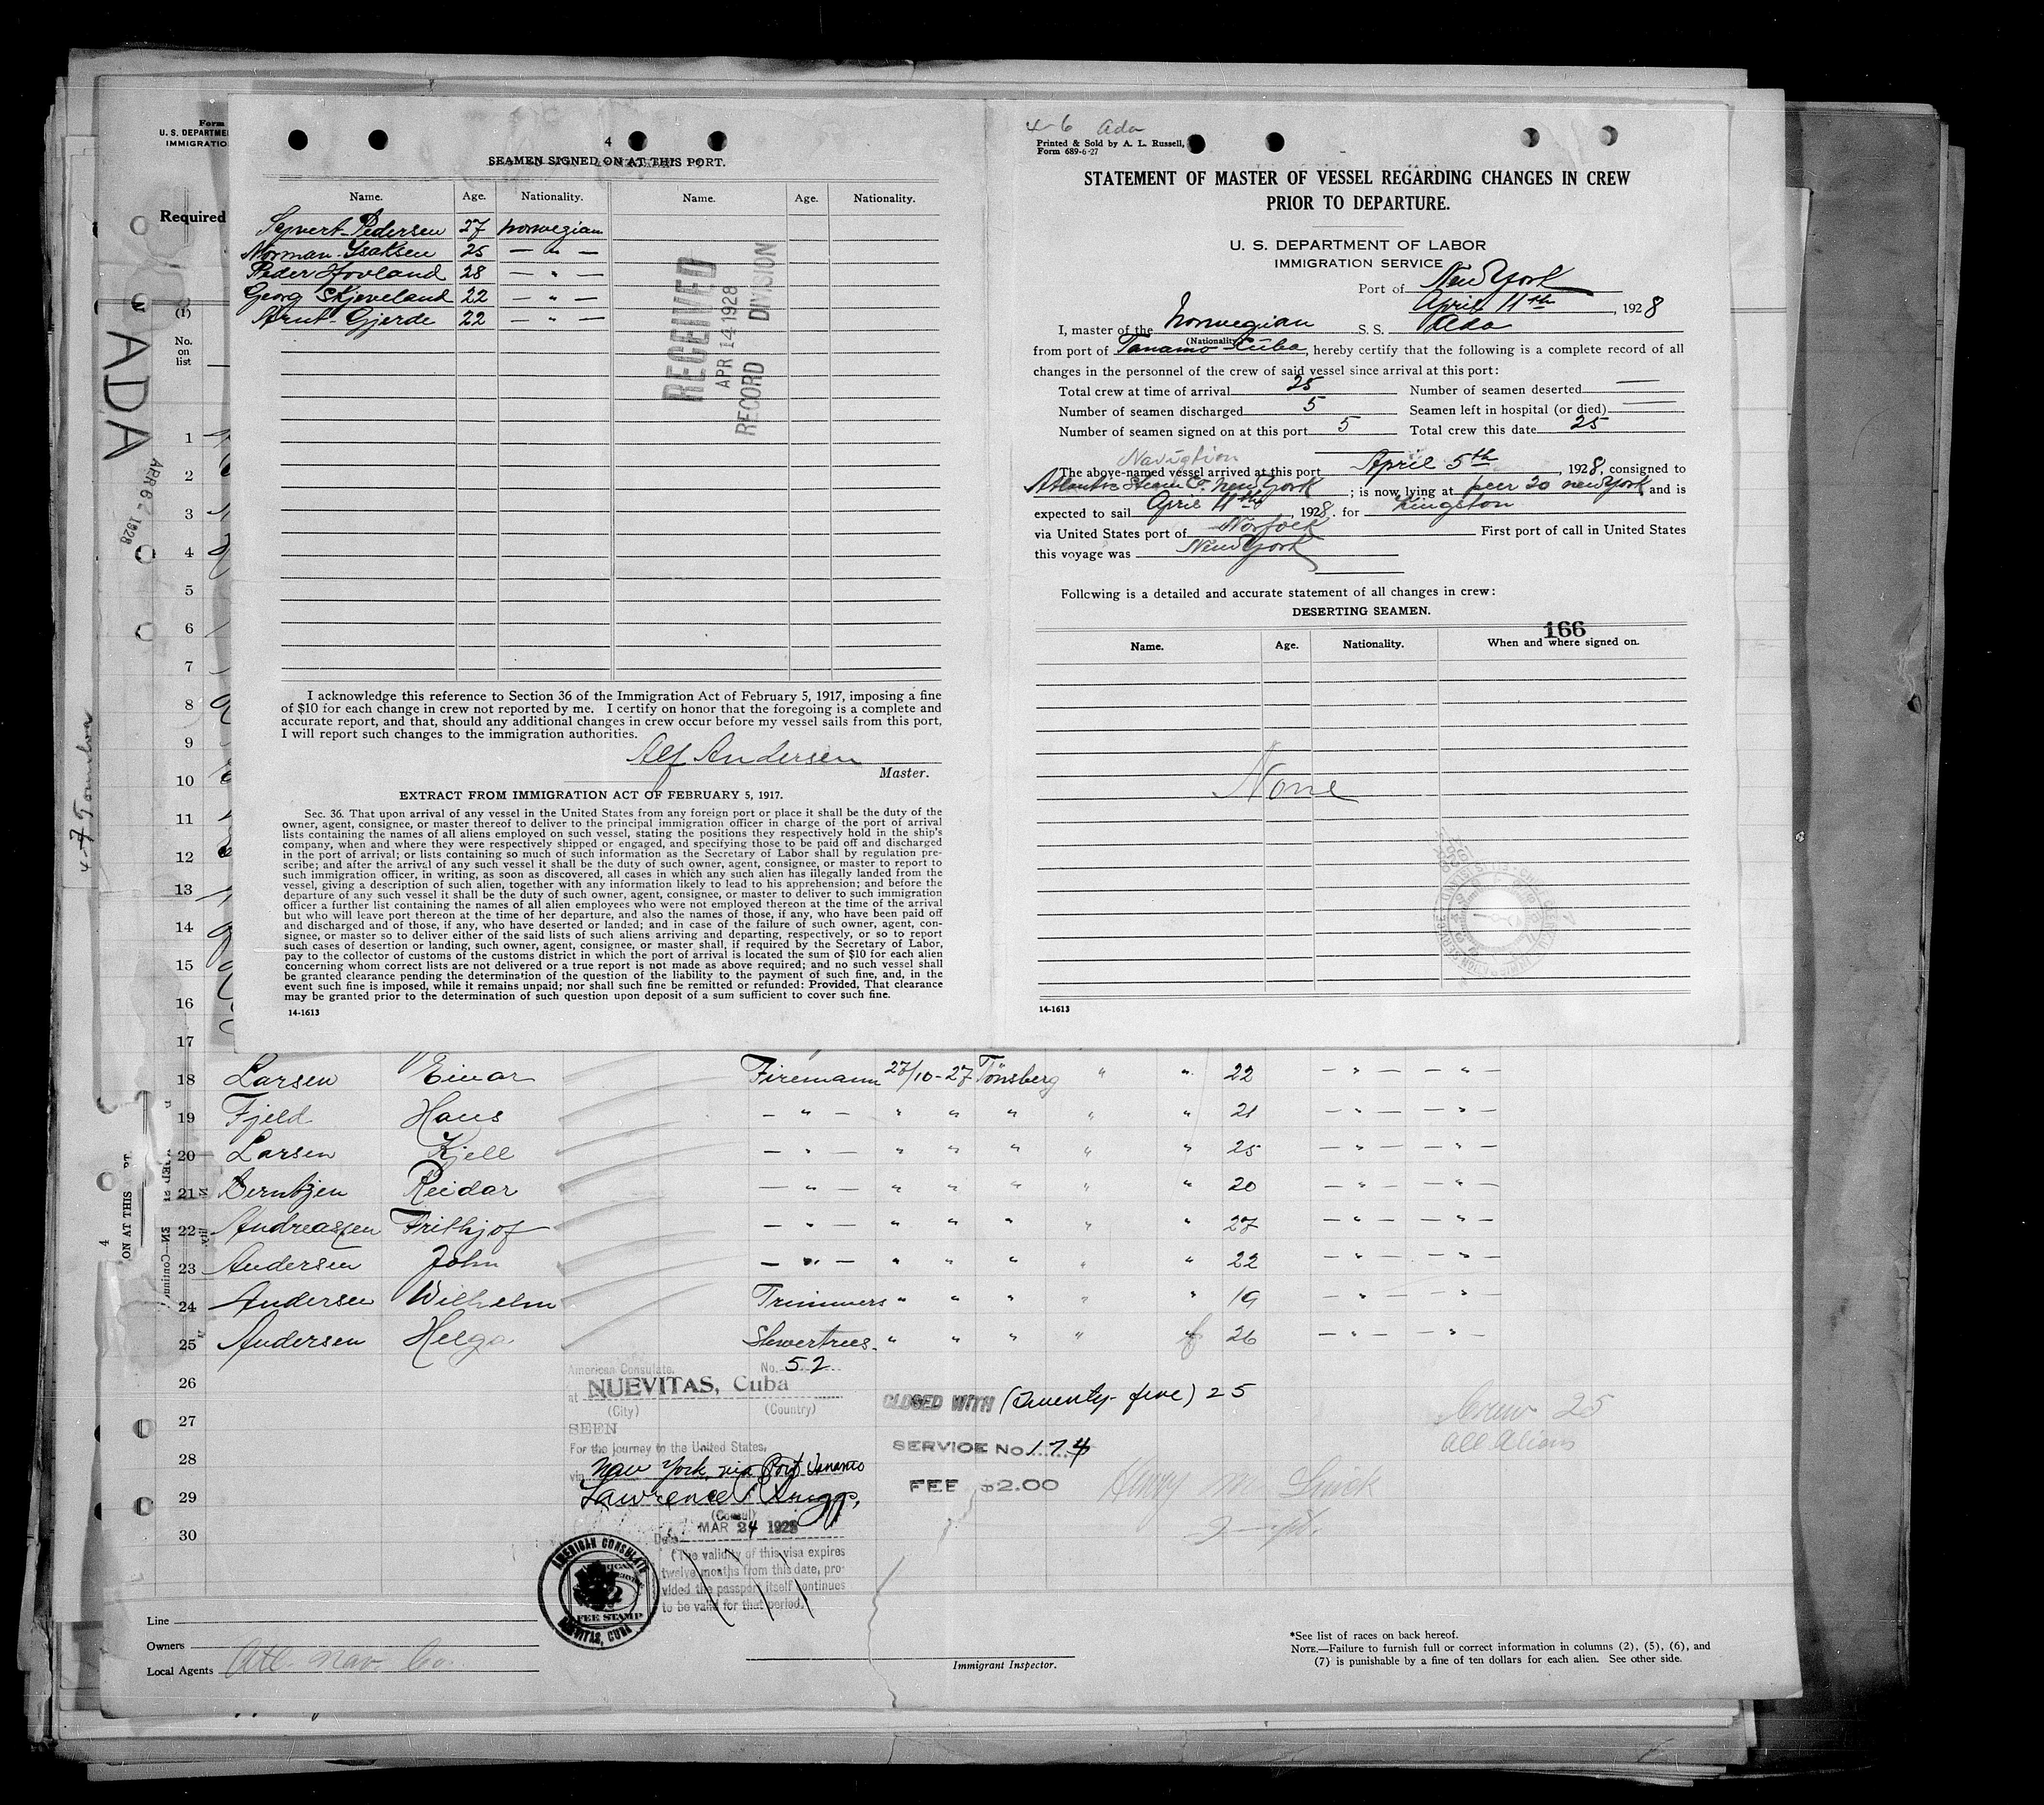 Form
U. S. DEPARTME
IMMIGRATIO
Required
(1)
No.
on
list
ADA
APR 6 - 1928
4-7
4
SEAMEN SIGNED ON AT THIS PORT.
Name. Age. Nationality. Name. Age. Nationality.
Syvert Pedersen 27 Norwegian
Norman Ysaksen 25 — " —
Peder Hovland 28 — " —
Georg Skjeveland 22 — " —
Arnt Gjerde 22 — " —
RECEIVED
APR 14 1928
RECORD DIVISION
I acknowledge this reference to Section 36 of the Immigration Act of February 5, 1917, imposing a fine
of $10 for each change in crew not reported by me. I certify on honor that the foregoing is a complete and
accurate report, and that, should any additional changes in crew occur before my vessel sails from this port,
I will report such changes to the immigration authorities.
Alf Andersen
Master.
EXTRACT FROM IMMIGRATION ACT OF FEBRUARY 5, 1917.
Sec. 36. That upon arrival of any vessel in the United States from any foreign port or place it shall be the duty of the
owner, agent, consignee, or master thereof to deliver to the principal immigration officer in charge of the port of arrival
lists containing the names of all aliens employed on such vessel, stating the positions they respectively hold in the ship's
company, when and where they were respectively shipped or engaged, and specifying those to be paid off and discharged
in the port of arrival; or lists containing so much of such information as the Secretary of Labor shall by regulation pre-
scribe; and after the arrival of any such vessel it shall be the duty of such owner, agent, consignee, or master to report to
such immigration officer, in writing, as soon as discovered, all cases in which any such alien has illegally landed from the
vessel, giving a description of such alien, together with any information likely to lead to his apprehension; and before the
departure of any such vessel it shall be the duty of such owner, agent, consignee, or master to deliver to such immigration
officer a further list containing the names of all alien employees who were not employed thereon at the time of the arrival
but who will leave port thereon at the time of her departure, and also the names of those, if any, who have been paid off
and discharged and of those, if any, who have deserted or landed; and in case of the failure of such owner, agent, con-
signee, or master so to deliver either of the said lists of such aliens arriving and departing, respectively, or so to report
such cases of desertion or landing, such owner, agent, consignee, or master shall, if required by the Secretary of Labor,
pay to the collector of customs of the customs district in which the port of arrival is located the sum of $10 for each alien
concerning whom correct lists are not delivered or a true report is not made as above required; and no such vessel shall
be granted clearance pending the determination of the question of the liability to the payment of such fine, and, in the
event such fine is imposed, while it remains unpaid; nor shall such fine be remitted or refunded: Provided, That clearance
may be granted prior to the determination of such question upon deposit of a sum sufficient to cover such fine.
14-1613
4-6 Ada
Printed & Sold by A. L. Russell,
Form 689-6-27
STATEMENT OF MASTER OF VESSEL REGARDING CHANGES IN CREW
PRIOR TO DEPARTURE.
U. S. DEPARTMENT OF LABOR
IMMIGRATION SERVICE
Port of New York
April 11th, 1928
I, master of the Norwegian S. S. Ada
(Nationality)
from port of Tanamo Cuba, hereby certify that the following is a complete record of all
changes in the personnel of the crew of said vessel since arrival at this port:
Total crew at time of arrival 25 Number of seamen deserted —
Number of seamen discharged 5 Seamen left in hospital (or died) —
Number of seamen signed on at this port 5 Total crew this date 25
Navigtion
The above-named vessel arrived at this port April 5th, 1928, consigned to
Atlantic Steam Co. New York; is now lying at peer 20 new York and is
expected to sail April 11th, 1928. for Kingston
via United States port of Norfolk First port of call in United States
this voyage was New York
Following is a detailed and accurate statement of all changes in crew:
DESERTING SEAMEN.
166
Name. Age. Nationality. When and where signed on.
None
14-1613
1
2
3
4
5
6
7
8
9
10
11
12
13
14
15
16
17
18 Larsen Einar Firemann 27/10-27 Tönsberg " " 22 — " — — " —
19 Fjeld Hans — " — " " " " " 21 — " — — " —
20 Larsen Kjell — " — " " " " " 25 — " — — " —
21 Berntzen Reidar — " — " " " " " 20 — " — — " —
22 Andreassen Frithjof — " — " " " " " 27 — " — — " —
23 Andersen John — " — " " " " " 22 — " — — " —
24 Andersen Wilhelm Trimmers " " " " " 19 — " — — " —
25 Andersen Helga Stewertrees. " " " " f 26 — " — — " —
26
27
28
29
30
American Consulate, No. 52
at NUEVITAS, Cuba
(City) (Country)
SEEN
For the journey to the United States,
via New York via Port Tanamo
(Consul)
Date MAR 24 1928
(The validity of this visa expires
twelve months from this date, pro-
vided the passport itself continues
to be valid for that period.)
AMERICAN CONSULATE
FEE STAMP
NUEVITAS, CUBA
CLOSED WITH (Twenty-five) 25
SERVICE No. 174
FEE $2.00
Crew 25
All Aliens
Line
Owners
Local Agents Atl. Nav. Co.
Immigrant Inspector.
*See list of races on back hereof.
NOTE.—Failure to furnish full or correct information in columns (2), (5), (6), and
(7) is punishable by a fine of ten dollars for each alien. See other side.
4
ON AT THIS